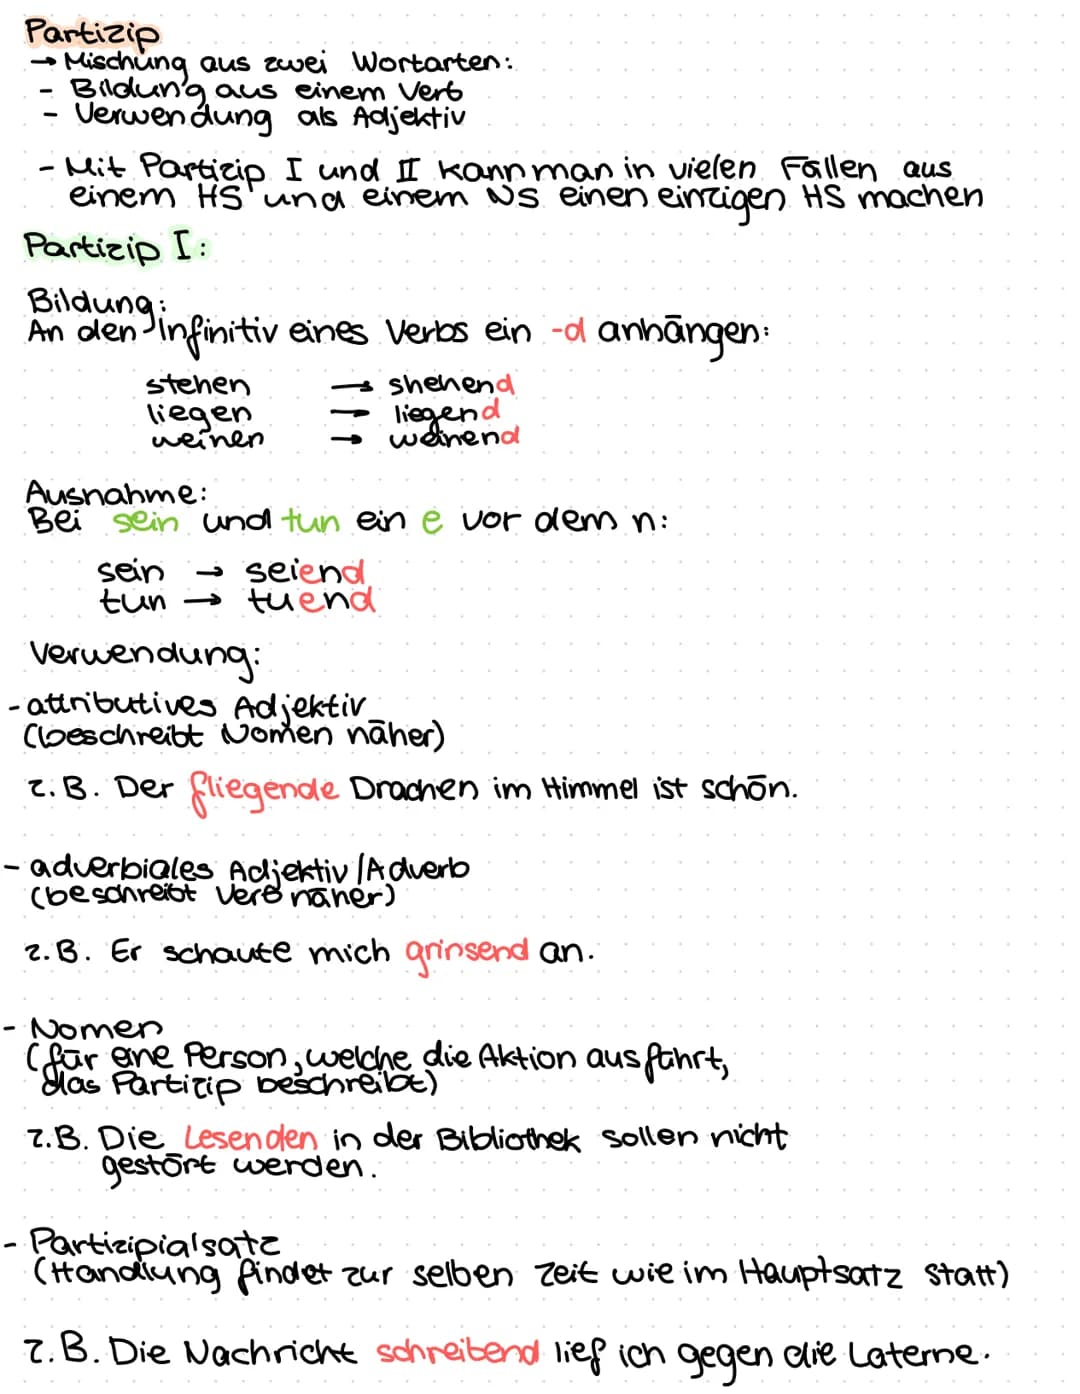 Partizip
→ Mischung aus zwei Wortarten:
- Bildung aus einem Verb
- Verwendung als Adjektiv
- Mit Partizip I und II kann man in vielen Fällen aus
einem HS und einem NS einen einzigen HS machen
Partizip I:
Bildung:
An den Infinitiv eines Verbs ein -d anhängen:
stehen → shehend
liegen → liegend
weinen → weinend
Ausnahme:
Bei sein und tun ein e vor dem n:
sein → seiend
tun → tuend
Verwendung:
- attributives Adjektiv
(beschreibt Nomen näher)
z. B. Der fliegende Drachen im Himmel ist schön.
- adverbiales Adjektiv/Adverb
(beschreibt Verb näher)
z. B. Er schaute mich grinsend an.
- Nomen
(für eine Person, welche die Aktion ausführt,
das Partizip beschreibt)
z. B. Die Lesenden in der Bibliothek sollen nicht
gestört werden.
- Partizipialsatz
(Handlung findet zur selben Zeit wie im Hauptsatz statt)
z. B. Die Nachricht schreibend lief ich gegen die Laterne.